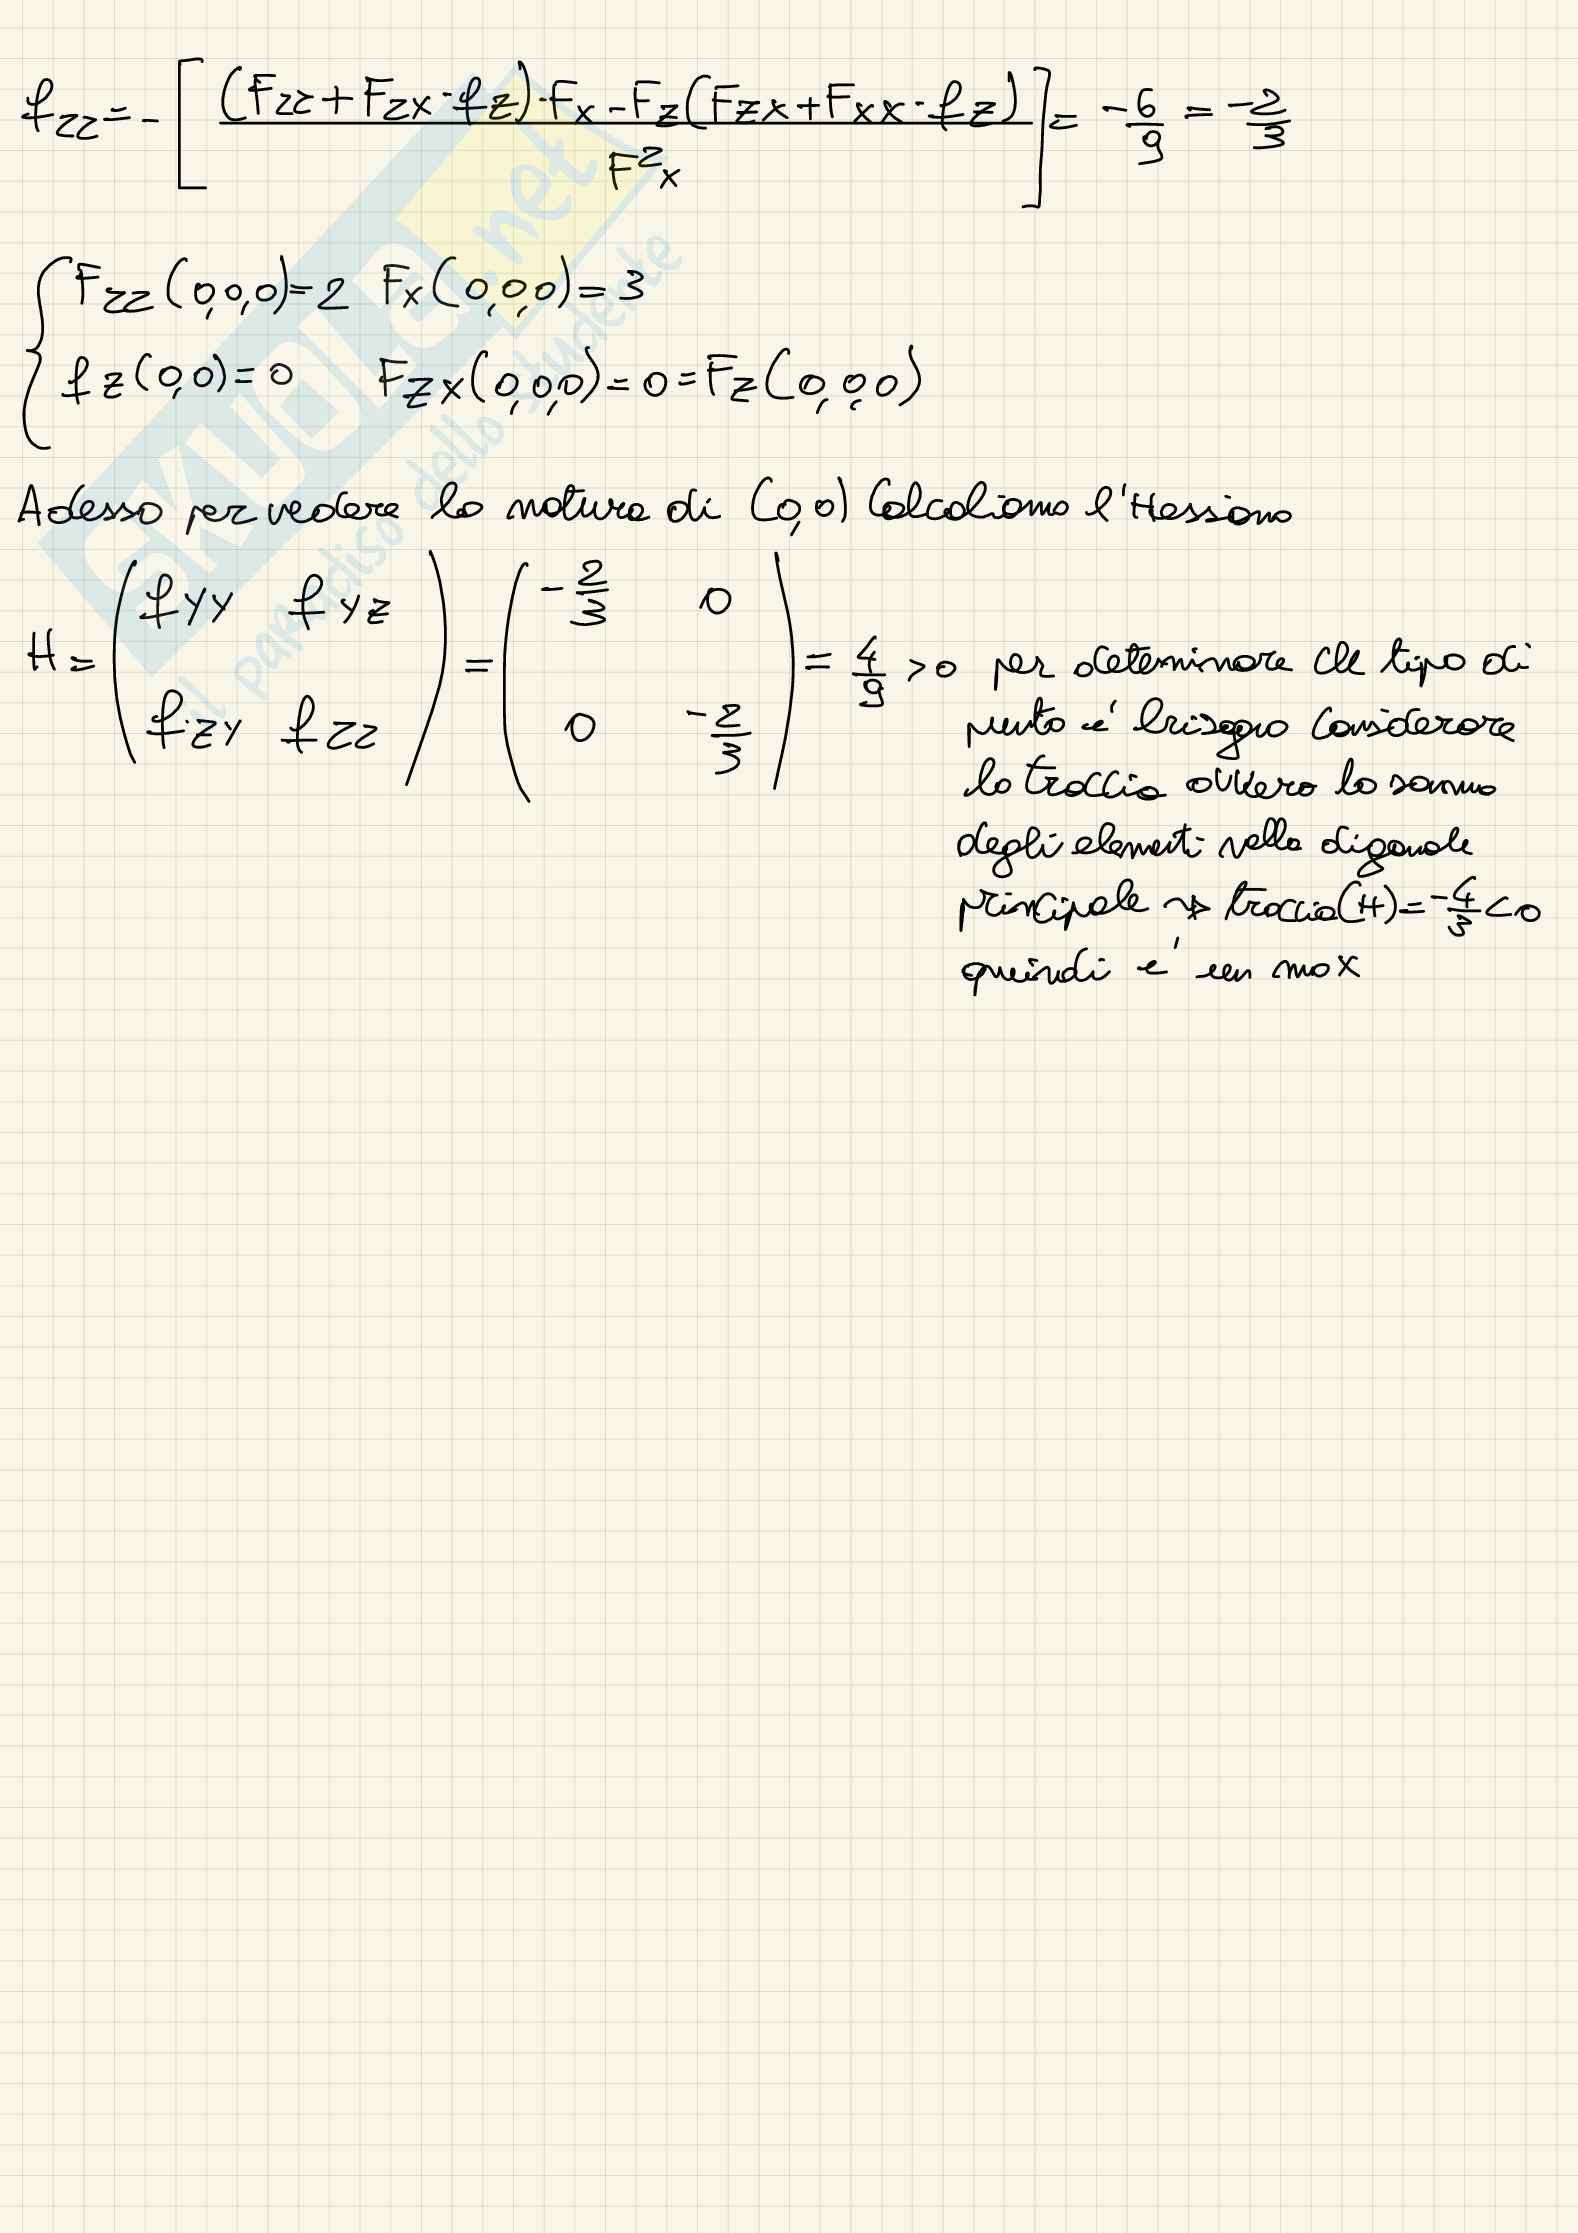 fzz = - [ (Fzz + Fzx · fz) · Fx - Fz (Fzx + Fxx · fz) / F²x ] = -6/9 = -2/3
{ Fzz (0,0,0) = 2 Fx (0,0,0) = 3
fz (0,0) = 0 Fzx (0,0,0) = 0 = Fz (0,0,0)
Adesso per vedere la natura di (0,0) Calcoliamo l'Hessiano
H = ( fyy fyz ) = ( -2/3 0 ) = 4/9 > 0 per determinare che tipo di
( fzy fzz ) ( 0 -2/3 ) punto e' bisogno considerare
la traccia ovvero la somma
degli elementi nella digonale
principale → traccia(H) = -4/3 < 0
quindi e' un max
SKUOLA.net
il paradiso dello studente